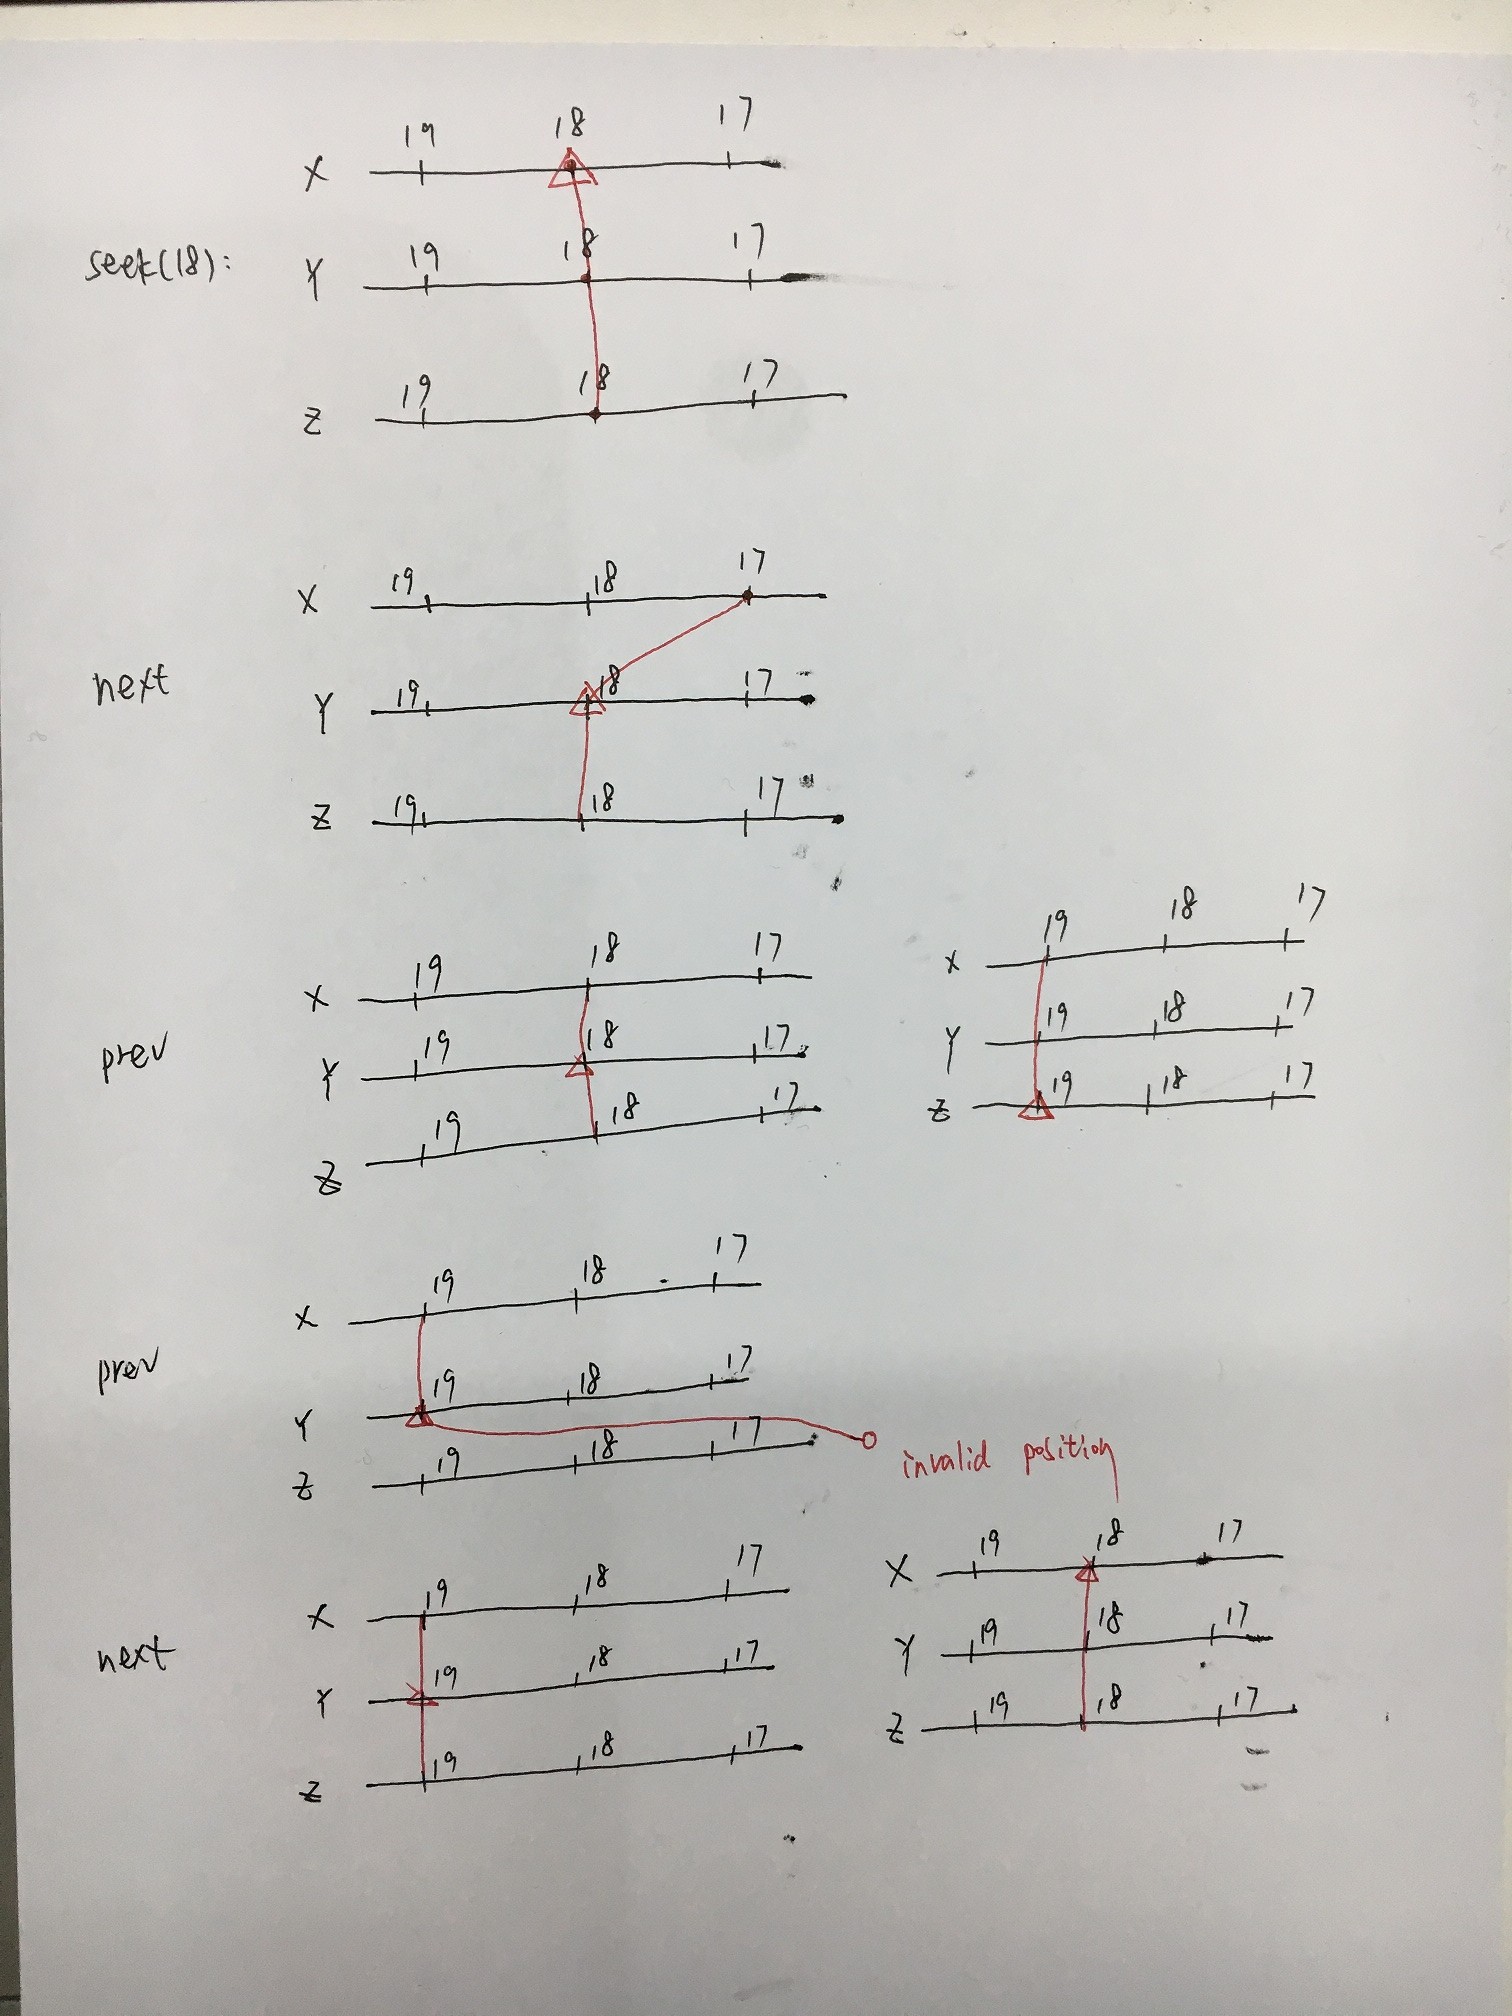 19 18 17
X
seek(18):
19 18 17
Y
19 18 17
Z
19 18 17
X
next
19 18 17
Y
19 18 17
Z
19 18 17
X
prev
19 18 17
Y
19 18 17
Z
19 18 17
X
19 18 17
Y
19 18 17
Z
19 18 17
X
prev
19 18 17
Y
19 18 17
Z
invalid position
19 18 17
X
next
19 18 17
Y
19 18 17
Z
19 18 17
X
19 18 17
Y
19 18 17
Z